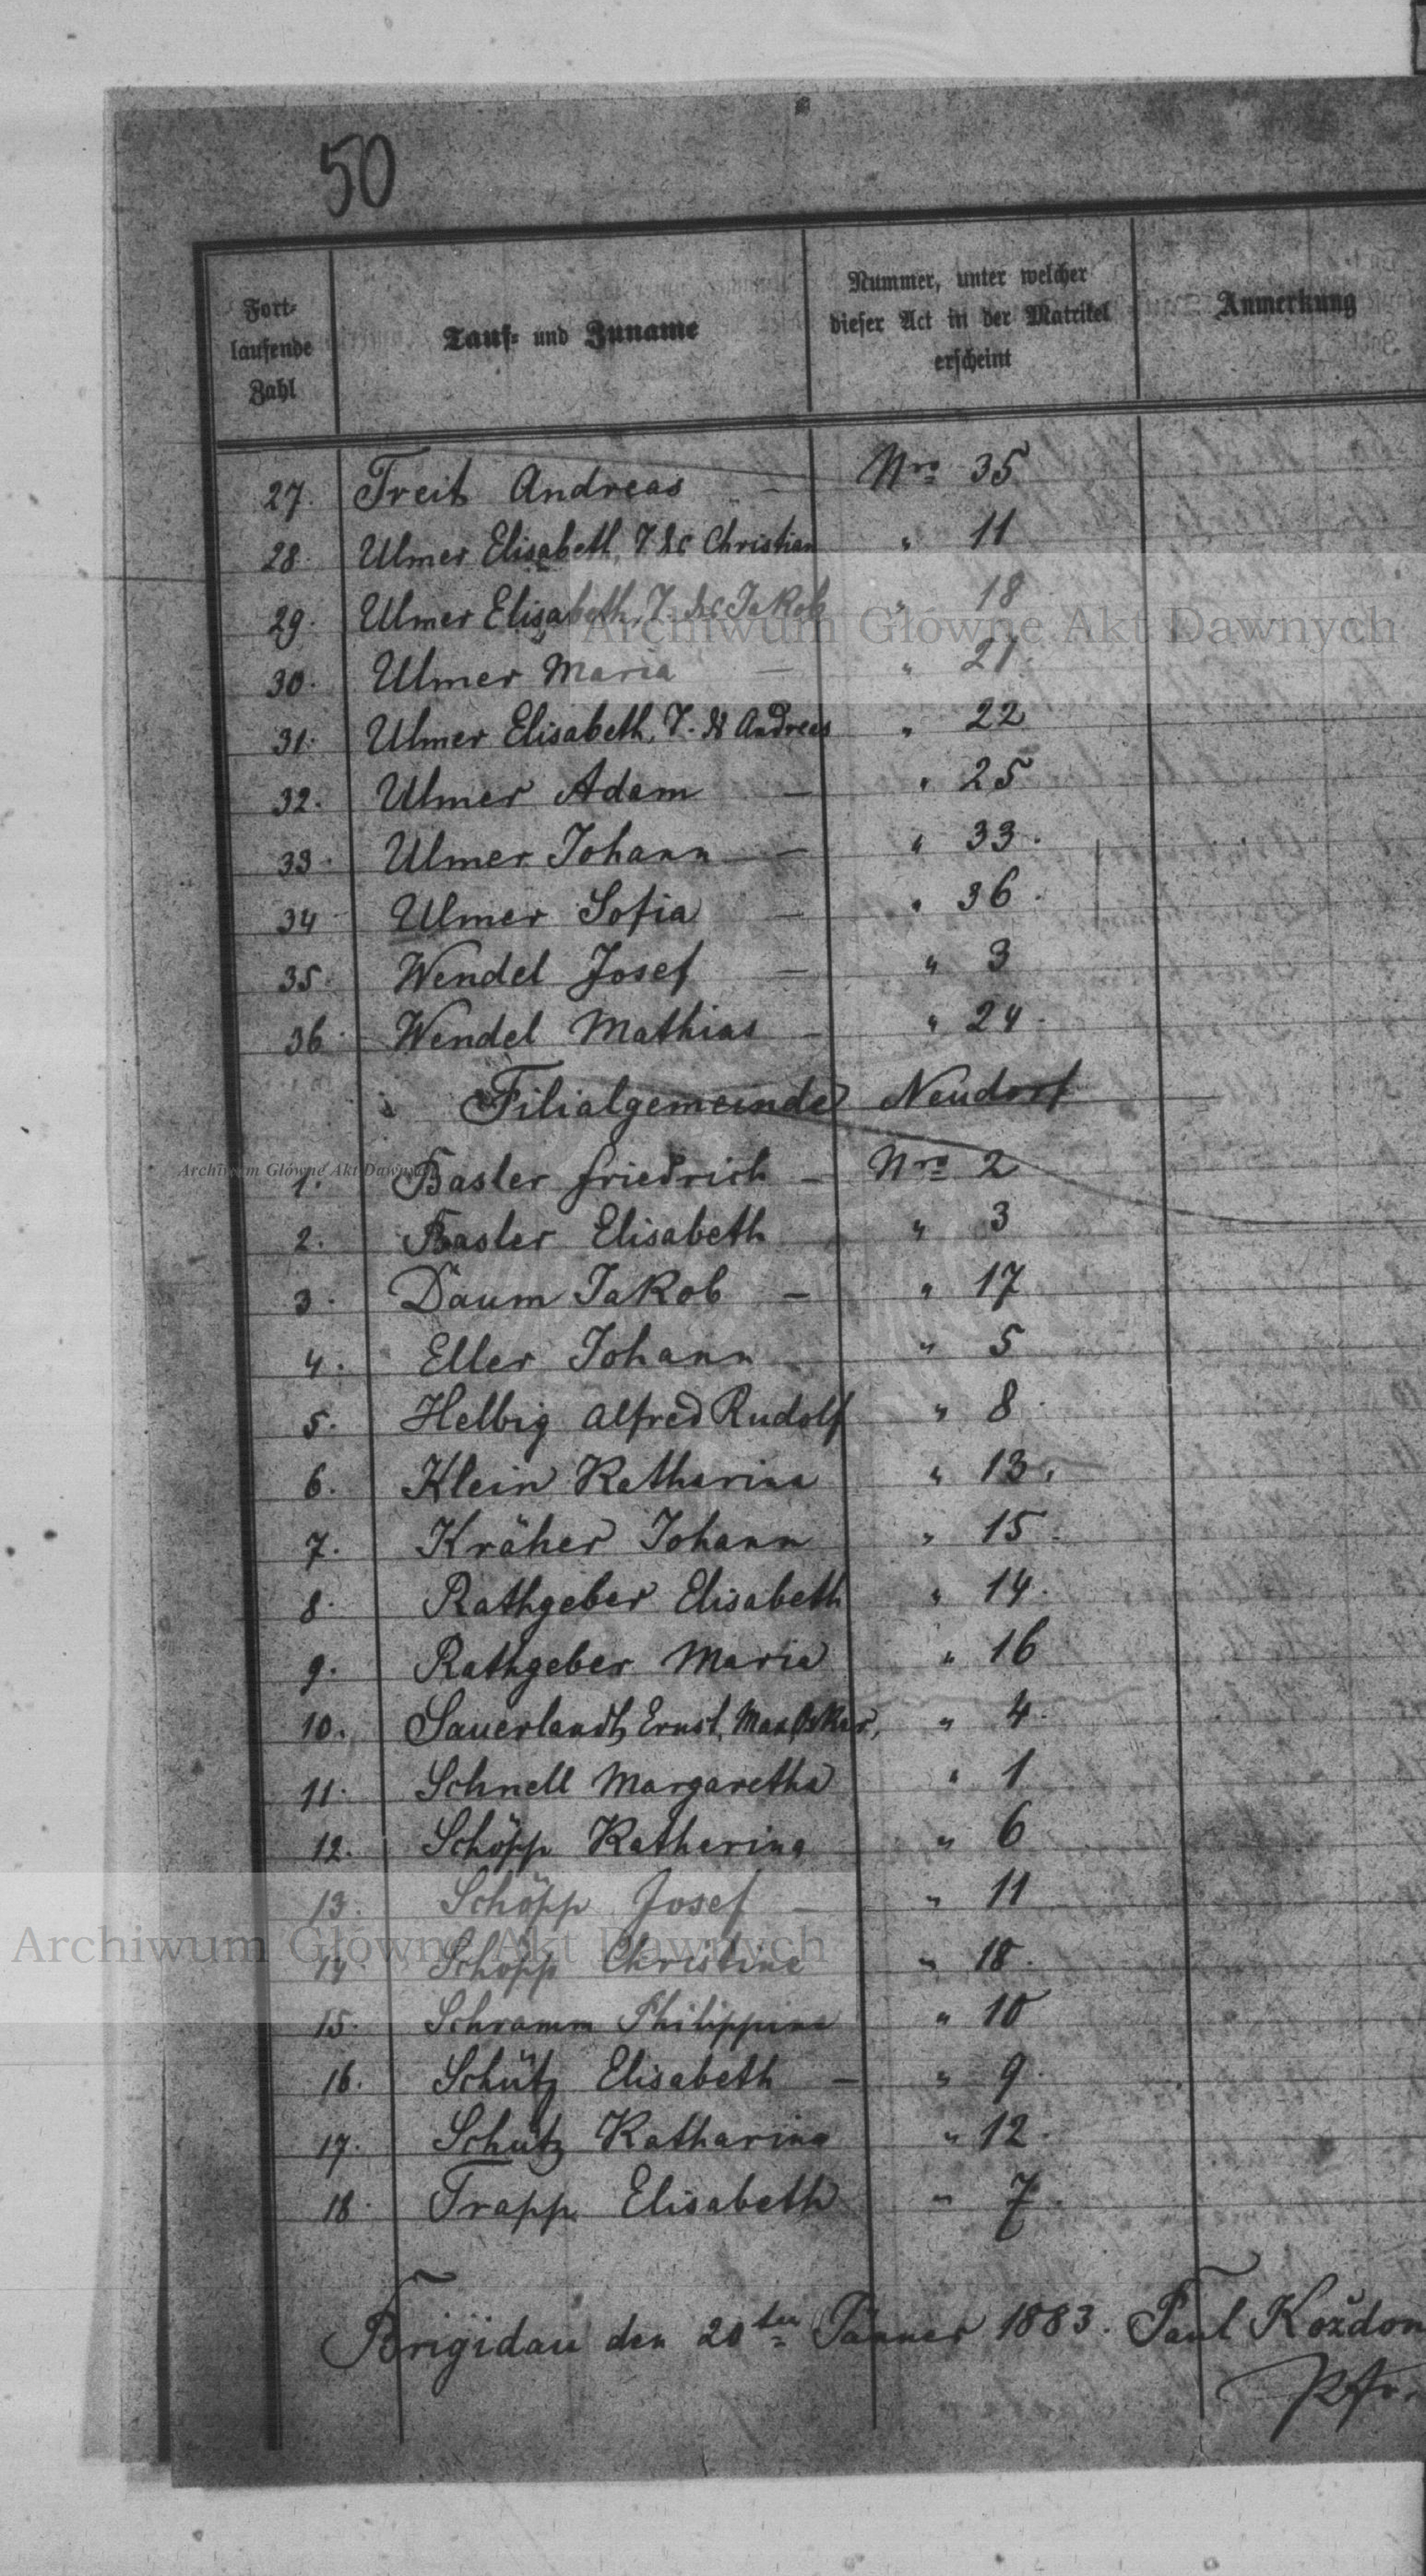 50
Fort-
laufende
Zahl
Tauf- und Zuname
Nummer, unter welcher
dieser Act in der Matrikel
erscheint
Anmerkung
27. Treit Andreas — Nro 35
28. Ulmer Elisabeth, T. des Christian " 11
29. Ulmer Elisabeth, T. des Jakob " 18
30. Ulmer Maria — " 21
31. Ulmer Elisabeth, T. d. Andreas " 22
32. Ulmer Adam — " 25
33. Ulmer Johann — " 33.
34 Ulmer Sofia — " 36.
35. Wendel Josef — " 3
36. Wendel Mathias — " 24.
Filialgemeinde Neudorf
1. Basler Friedrich — Nro 2
2. Basler Elisabeth " 3
3. Daum Jakob — " 17
4. Eller Johann " 5
5. Helbig Alfred Rudolf " 8.
6. Klein Katharina " 13.
7. Kräher Johann " 15.
8. Rathgeber Elisabeth " 14.
9. Rathgeber Maria " 16
10. Sauerlandt, Ernst, Max Oskar, " 4.
11. Schnell Margaretha " 1
12. Schöpp Katharina " 6
13. Schöpp Josef — " 11
14. Schöpp Christine " 18.
15. Schramm Philippine " 10
16. Schütz Elisabeth — " 9.
17. Schütz Katharina " 12.
18. Trapp Elisabeth " 7.
Brigidau den 20ten Jänner 1883. Paul Koždon
Pfr.
Archiwum Główne Akt Dawnych
Archiwum Główne Akt Dawnych
Archiwum Główne Akt Dawnych